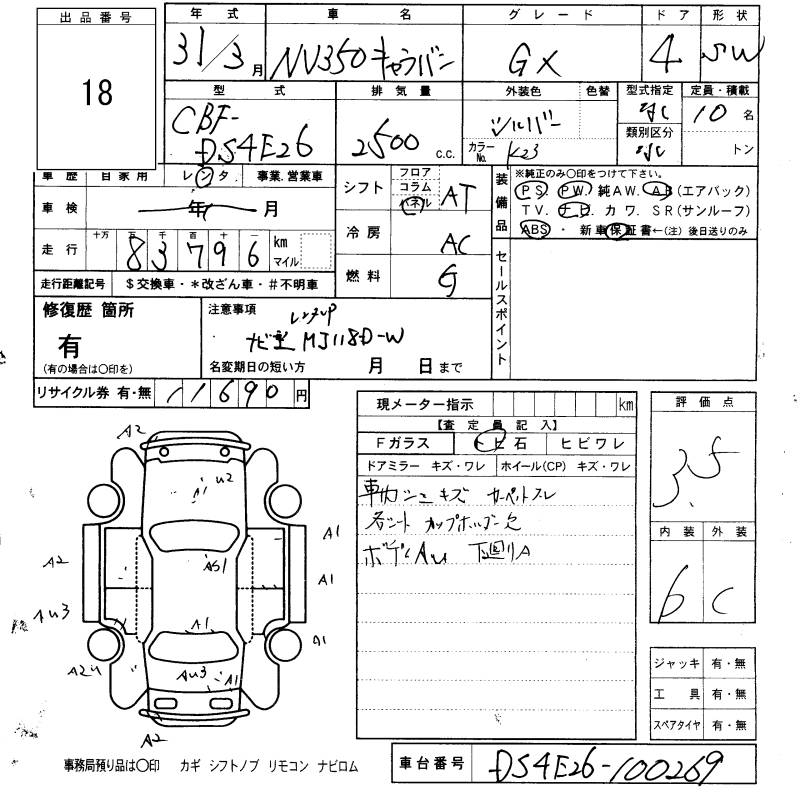 出品番号 18
年式 31/3月
車名 NV350キャラバン
グレード GX
ドア 4
形状 SW
型式 CBF-DS4E26
排気量 2500 C.C.
外装色 シルバー
色替
カラーNo. K23
型式指定
類別区分
定員・積載 10名
トン
車歴 自家用 レンタ 事業.営業車
車検 年 月
走行 十万 万 千 百 十 一 83796 km マイル
走行距離記号 $交換車・*改ざん車・#不明車
シフト フロア コラム パネル AT
冷房 AC
燃料 G
装備品
※純正のみ〇印をつけて下さい。
PS PW 純AW. AB(エアバック)
TV. ナビ カワ. SR(サンルーフ)
ABS ・ 新車保証書←(注)後日送りのみ
セールスポイント
修復歴 箇所
有
(有の場合は〇印を)
注意事項
レンタUP
MJ118D-W
名変期日の短い方 月 日まで
リサイクル券 有・無 11690円
現メーター指示 km
【査定員記入】
Fガラス トビ石 ヒビワレ
ドアミラー キズ・ワレ ホイール(CP) キズ・ワレ
車内シミキズ カーペットスレ
各シート カップホルダー欠
ボディAU 下廻りA
評価点 3.5
内装 外装
6 C
ジャッキ 有・無
工具 有・無
スペアタイヤ 有・無
A2
U2
A1
A1
A2
AS1
A1
AU3
A1
A1
A2U
AU3
A1
A2
事務局預り品は〇印 カギ シフトノブ リモコン ナビロム
車台番号 DS4E26-100269